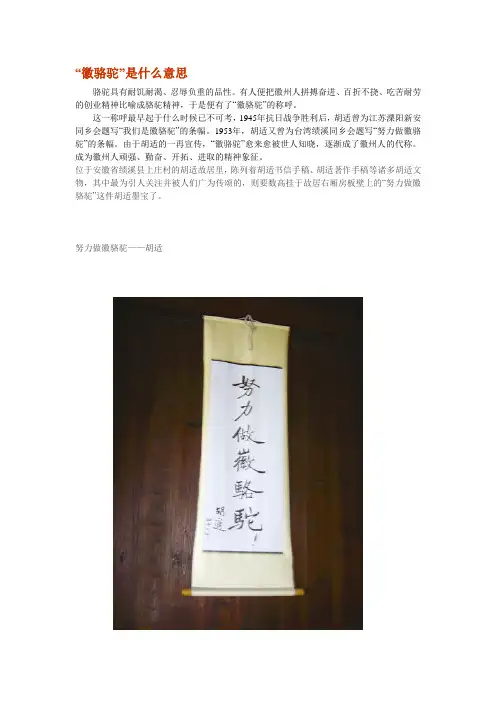 “徽骆驼”是什么意思
骆驼具有耐饥耐渴、忍辱负重的品性。有人便把徽州人拼搏奋进、百折不挠、吃苦耐劳
的创业精神比喻成骆驼精神，于是便有了“徽骆驼”的称呼。
这一称呼最早起于什么时候已不可考，1945年抗日战争胜利后，胡适曾为江苏溧阳新安
同乡会题写“我们是徽骆驼”的条幅。1953年，胡适又曾为台湾绩溪同乡会题写“努力做徽骆
驼”的条幅。由于胡适的一再宣传，“徽骆驼”愈来愈被世人知晓，逐渐成了徽州人的代称。
成为徽州人顽强、勤奋、开拓、进取的精神象征。
位于安徽省绩溪县上庄村的胡适故居里，陈列着胡适书信手稿、胡适著作手稿等诸多胡适文
物，其中最为引人关注并被人们广为传颂的，则要数高挂于故居右厢房板壁上的“努力做徽
骆驼”这件胡适墨宝了。
努力做徽骆驼——胡适
努力做徽駱駝！
胡適